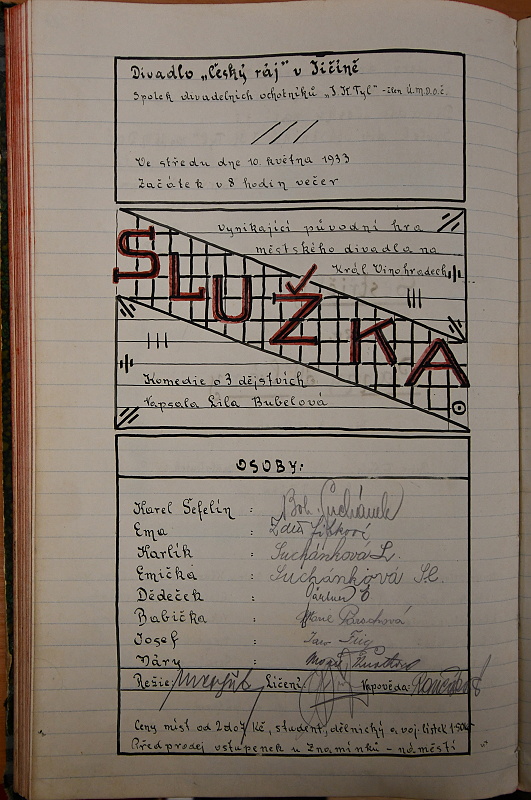 Divadlo „Český ráj" v Jičíně
Spolek divadelních ochotníků „J. K. Tyl" - člen Ú.M.D.O.Č.
Ve středu dne 10. května 1933
Začátek v 8 hodin večer
Vynikající původní hra
městského divadla na
Král. Vinohradech
SLUŽKA
Komedie o 3 dějstvích
Napsala Lila Bubelová
OSOBY:
Karel Šefelín : Boh. Suchánek
Ema :
Karlík : Suchánková L.
Emička : Suchánková Sl.
Dědeček :
Babička : Brochová
Josef : Jar.
Máry :
Režie: Líčení: Nápověda:
Ceny míst od 2 do 7 Kč, student, dělnický a voj. lístek 1·50 Kč
Předprodej vstupenek u Znamínků - náměstí